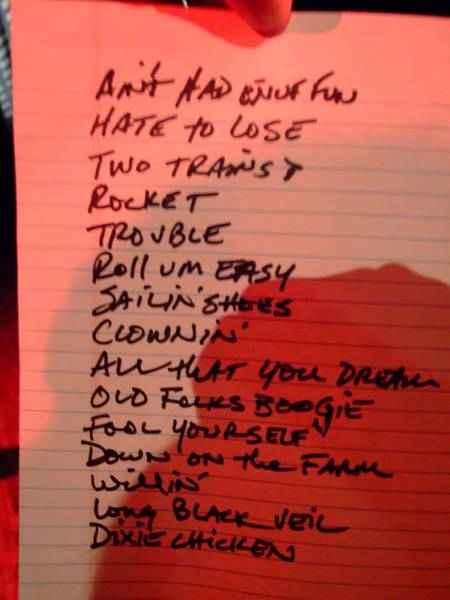 AIN'T HAD ENUF FUN
HATE TO LOSE
TWO TRAINS >
ROCKET
TROUBLE
ROLL UM EASY
SAILIN' SHOES
CLOWNIN'
ALL tHAT YOU DREAM
OLD FOLKS BOOGIE
FOOL YOURSELF
DOWN ON the FARM
WILLIN'
Long BLACK VEIL
DIXIE CHICKEN